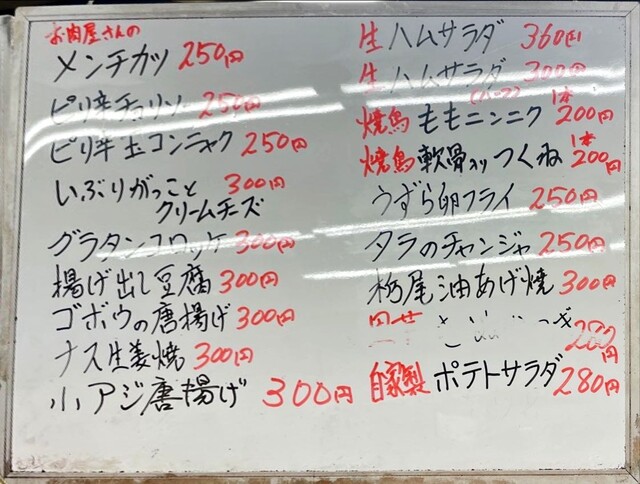 お肉屋さんの
メンチカツ 250円
ピリ辛チョリソー 250円
ピリ辛玉コンニャク 250円
いぶりがっこと 300円
クリームチーズ
グラタンコロッケ 300円
揚げ出し豆腐 300円
ゴボウの唐揚げ 300円
ナス生姜焼 300円
小アジ唐揚げ 300円
生ハムサラダ 360円
生ハムサラダ 300円
(ハーフ)
焼鳥 ももニンニク 1本 200円
焼鳥 軟骨入りつくね 1本 200円
うずら卵フライ 250円
タラのチャンジャ 250円
栃尾油あげ焼 300円
280円
自家製 ポテトサラダ 280円